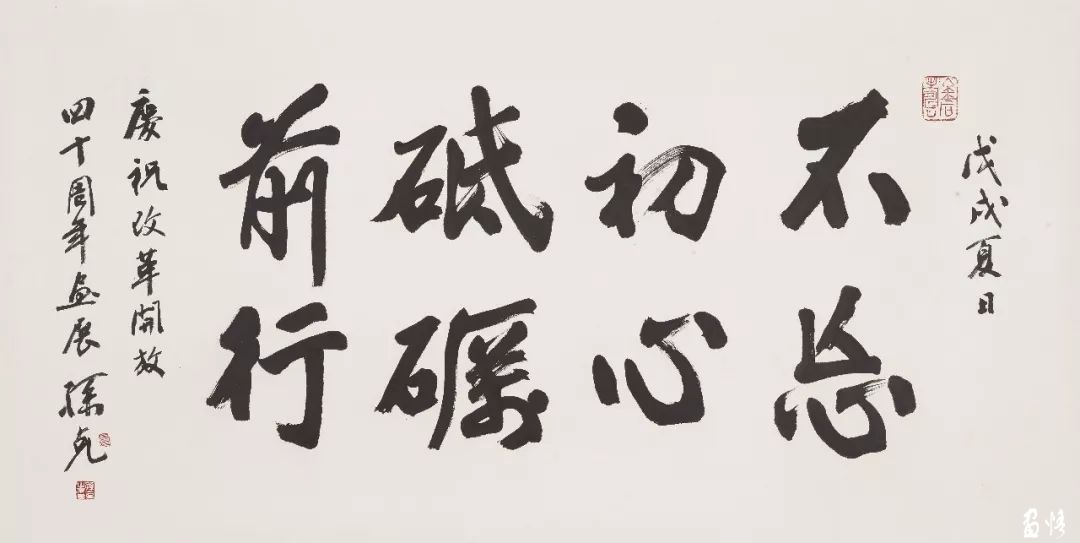 戊戌夏日
不忘
初心
砥礪
前行
慶祝改革開放
四十周年画展 孫克